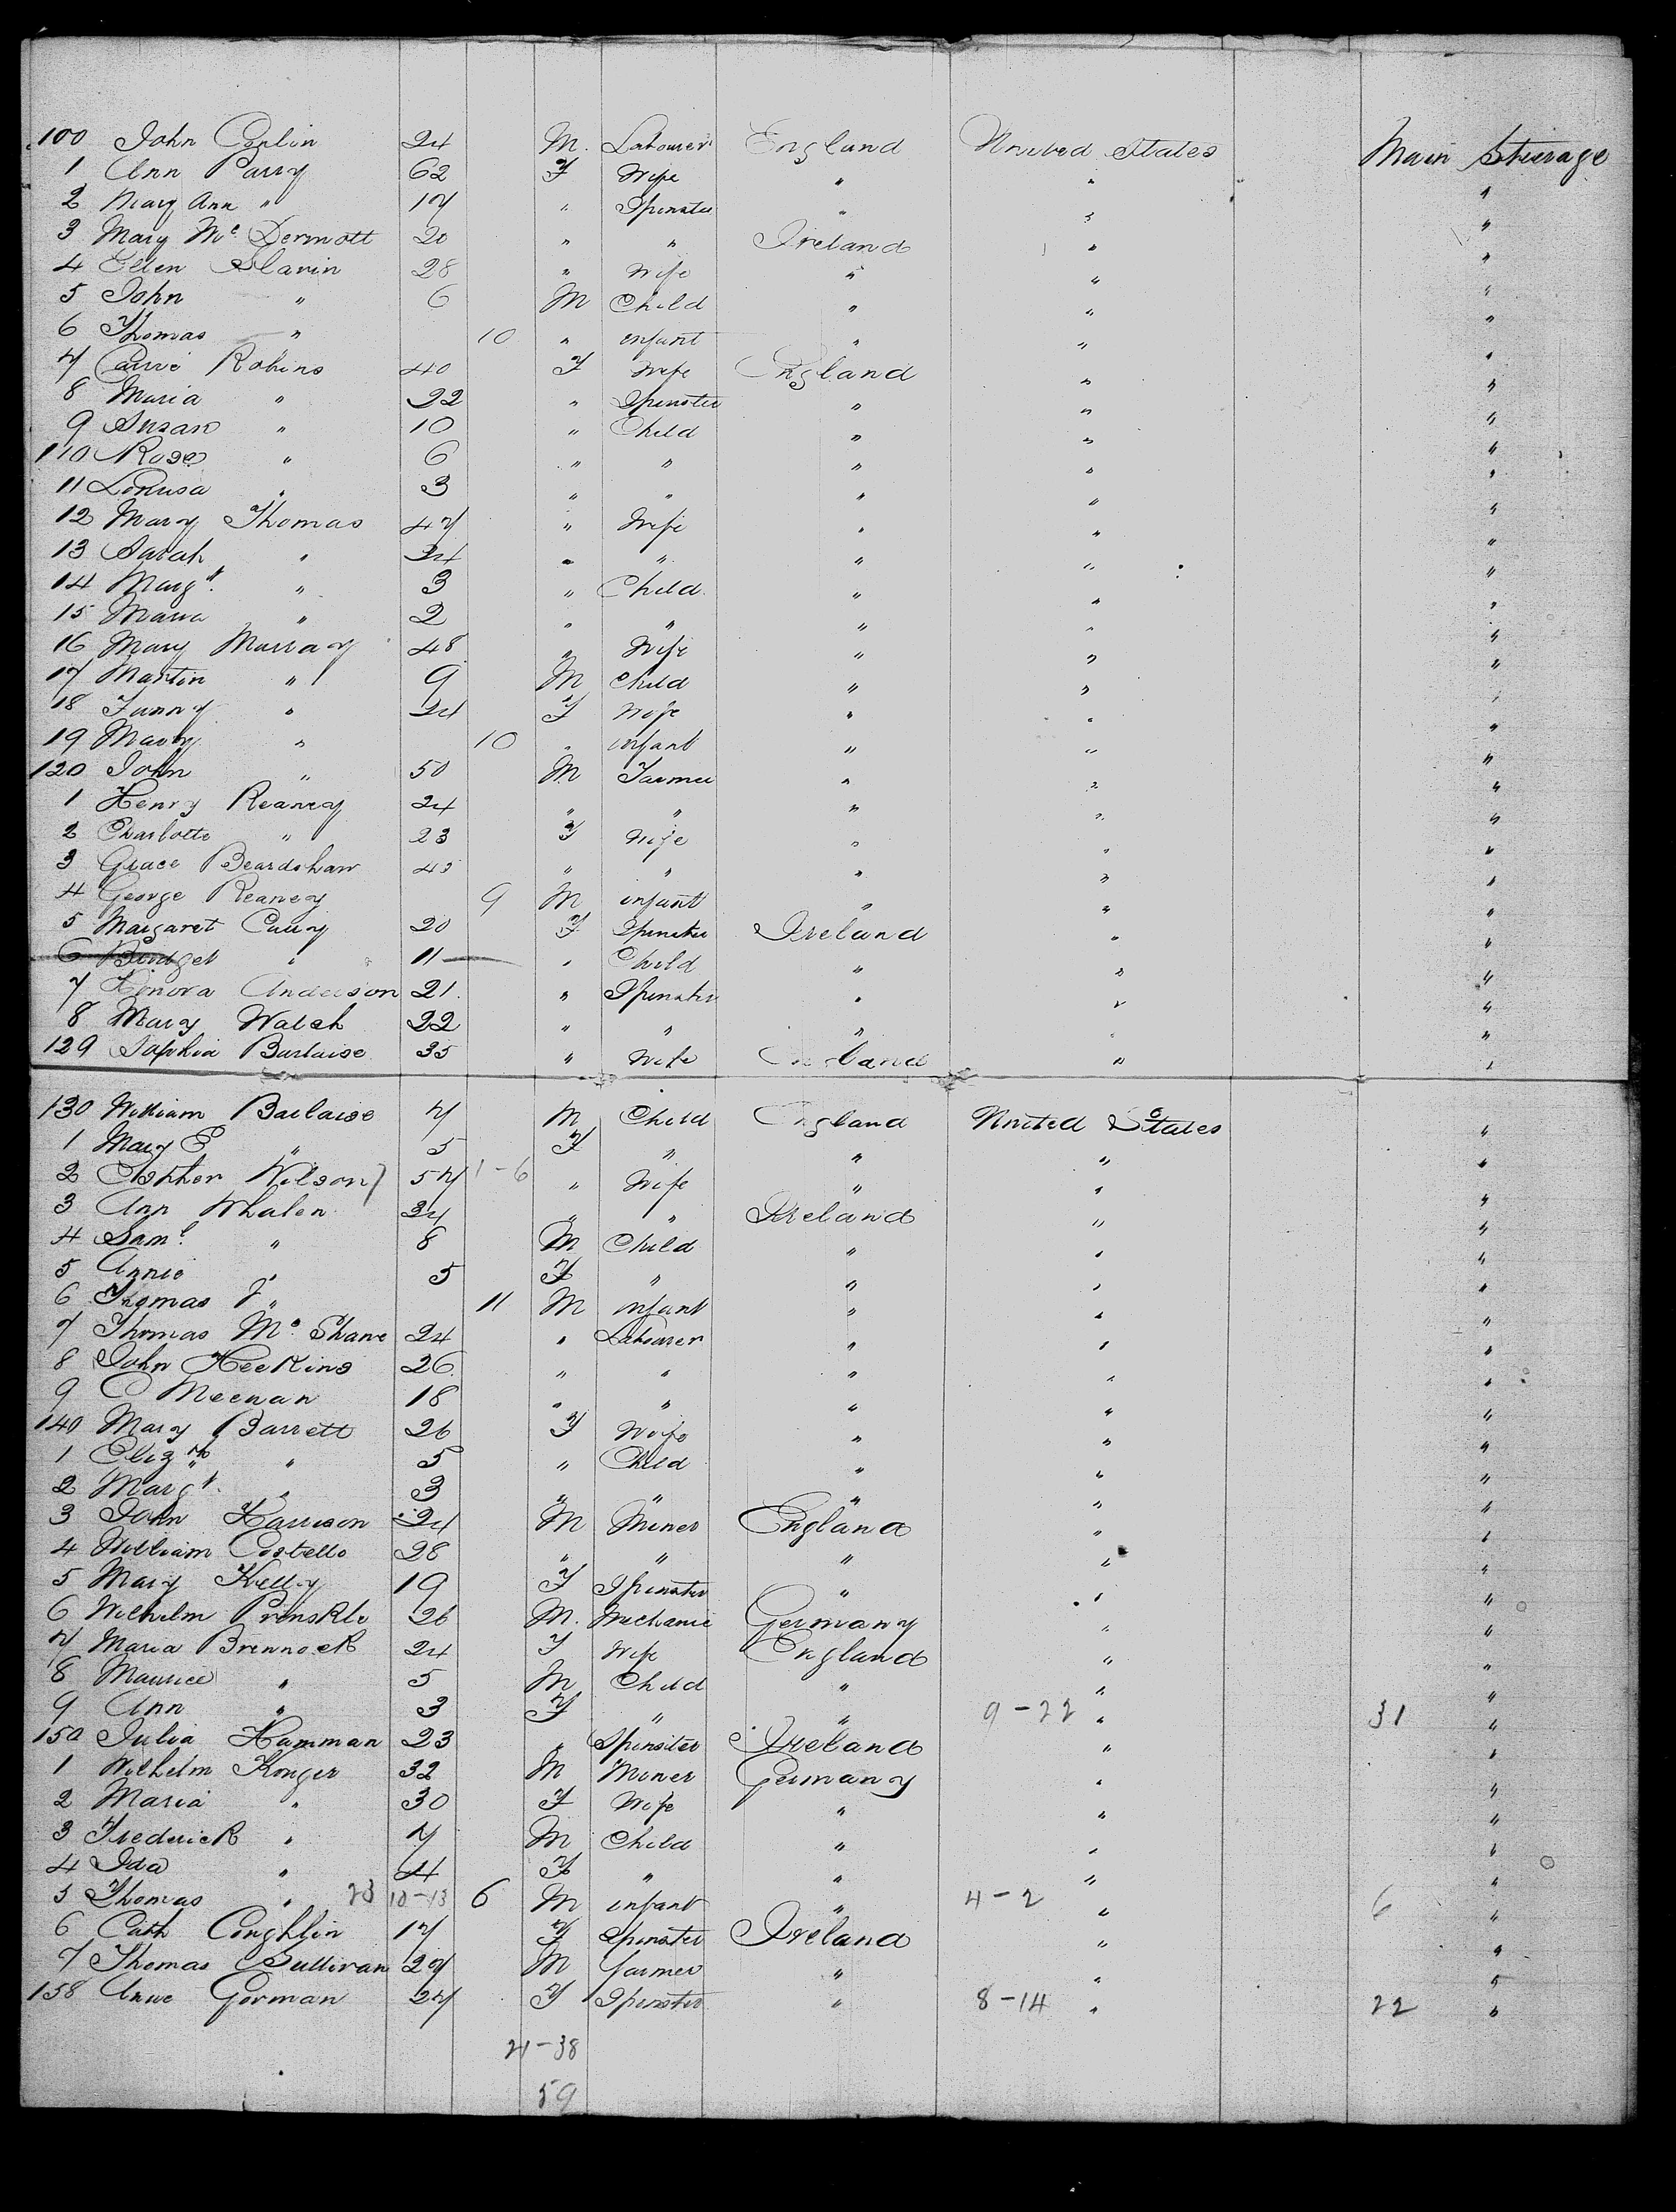 100 John Conlin 24 M. Labourer England United States Main Steerage
1 Ann Parry 62 F Wife " " "
2 Mary Ann " 17 " Spinster " " "
3 Mary Mc Dermott 20 " " Ireland " "
4 Ellen Slavin 28 " Wife " " "
5 John " 6 M Child " " "
6 Thomas " 10 " infant " " "
7 Robins 40 F Wife England " "
8 Maria " 22 " Spinster " " "
9 Susan " 10 " Child " " "
110 Rose " 6 " " " " "
11 Louisa " 3 " " " " "
12 Mary Thomas 47 " Wife " " "
13 Sarah " 24 " " " " "
14 Margt. " 3 " Child " " "
15 Maria " 2 " " " " "
16 Mary Murray 48 " Wife " " "
17 Martin " 9 M Child " " "
18 Fanny " 24 F Wife " " "
19 Mary " 10 " infant " " "
120 John " 50 M Farmer " " "
1 Henry Reaney 24 " " " " "
2 Charlotte " 23 F Wife " " "
3 Grace Beardshaw 43 " " " " "
4 George Reaney 9 M infant " " "
5 Margaret Curry 20 F Spinster Ireland " "
6 Bridget " 11 " Child " " "
7 Honora Anderson 21 " Spinster " " "
8 Mary Walsh 22 " " " " "
129 Sophia Barlaise 35 " Wife England " "
130 William Barlaise 7 M Child England United States "
1 Mary E " 5 F " " " "
2 Esther Wilson 57 1-6 " Wife " " "
3 Ann Whalen 34 " " Ireland " "
4 Saml. " 8 M Child " " "
5 Annie " 5 F " " " "
6 Thomas J " 11 M infant " " "
7 Thomas Mc Shane 24 " Labourer " " "
8 John Heekins 26 " " " " "
9 C Meenan 18 " " " " "
140 Mary Barrett 26 F Wife " " "
1 Elizth " 5 " Child " " "
2 Margt. " 3 " " " " "
3 John Harrison 24 M Miner England " "
4 William Costello 28 " " " " "
5 Mary Kelly 19 F Spinster " " "
6 Wilhelm 26 M. Mechanic Germany " "
7 Maria Brennock 24 F Wife England " "
8 Maurice " 5 M Child " " "
9 Ann " 3 F " " 9-22 " 31 "
150 Julia Hamman 23 " Spinster Ireland " "
1 Wilhelm Konger 32 M Miner Germany " "
2 Maria " 30 F Wife " " "
3 Frederick " 7 M Child " " "
4 Ida " 4 F " " " "
5 Thomas " 23 10-13 6 M infant " 4-2 " 6 "
6 Cath Coughlin 17 F Spinster Ireland " "
7 Thomas Sullivan 27 M farmer " " "
158 Anne Gorman 27 F Spinster " 8-14 " 22 "
21-38
59